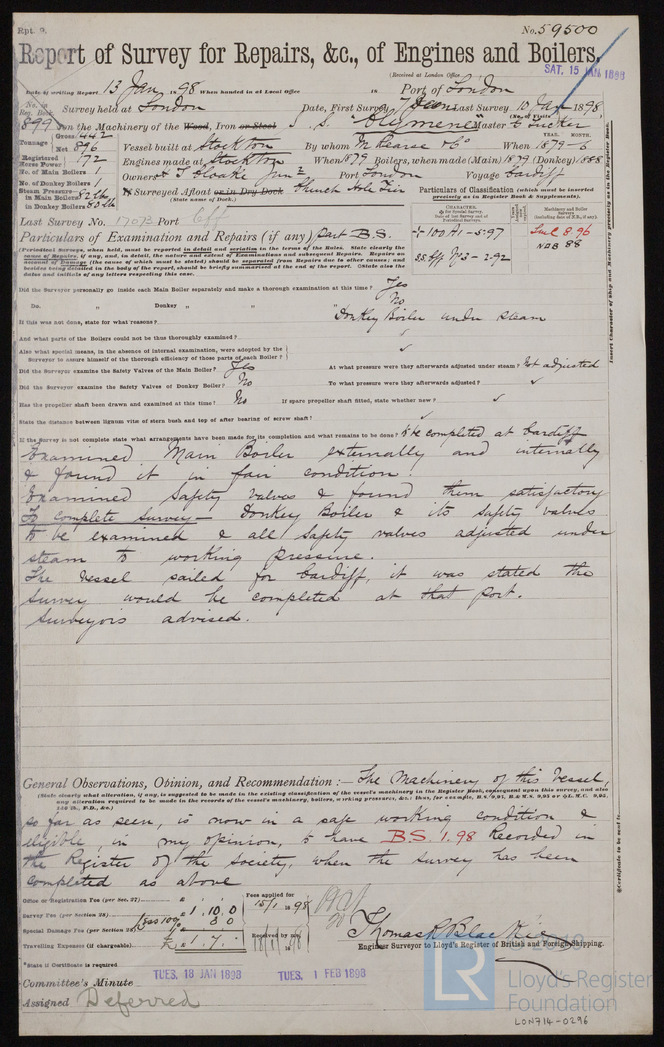 Rpt. 9.
No. 59500
Report of Survey for Repairs, &c., of Engines and Boilers.
(Received at London Office
SAT. 15 JAN 1898
Date of writing Report 13 Jan 1898 When handed in at Local Office
Port of London
No. in Reg. Book
899
Survey held at London
Date, First Survey 7 Decem Last Survey 10 Jan 1898
(No. of Visits
on the Machinery of the Wood, Iron or Steel S. S. "Clymene" Master C Tucker
Tonnage
Gross 442
Net 896
Vessel built at Stockton By whom M Pearse & Co When 1879-6
YEAR. MONTH.
Registered Horse Power 172
Engines made at Stockton When 1879 Boilers, when made (Main) 1879 (Donkey) 1888
No. of Main Boilers 1
Owners Port London Voyage Cardiff
No. of Donkey Boilers 1
Surveyed Afloat or in Dry Dock
(State name of Dock.)
Steam Pressure in Main Boilers
in Donkey Boilers
Particulars of Classification (which must be inserted precisely as in Register Book & Supplements).
Last Survey No. 17073 Port Cff
CHARACTER.
Machinery and Boiler Surveys
(including date of N.B., if any).
Particulars of Examination and Repairs (if any) Part B.S.
+100A1-5.97
S.S. Cff No3-2.92
LMC 8.96
NDB 88
(Periodical Surveys, when held, must be reported in detail and seriatim in the terms of the Rules. State clearly the
cause of Repairs, if any, and, in detail, the nature and extent of Examinations and subsequent Repairs. Repairs on
account of Damage (the cause of which must be stated) should be separated from Repairs due to other causes; and
besides being detailed in the body of the report, should be briefly summarised at the end of the report. State also the
dates and initials of any letters respecting this case.
Insert Character of Ship and Machinery precisely as in the Register Book.
Did the Surveyor personally go inside each Main Boiler separately and make a thorough examination at this time? Yes
Do. " Donkey " " " No
If this was not done, state for what reasons? Donkey Boiler under steam
And what parts of the Boilers could not be thus thoroughly examined? ✓
Also what special means, in the absence of internal examination, were adopted by the
Surveyor to assure himself of the thorough efficiency of those parts of each Boiler? ✓
Did the Surveyor examine the Safety Valves of the Main Boiler? Yes At what pressure were they afterwards adjusted under steam? Not adjusted
Did the Surveyor examine the Safety Valves of Donkey Boiler? No To what pressure were they afterwards adjusted? ✓
Has the propeller shaft been drawn and examined at this time? No If spare propeller shaft fitted, state whether new? ✓
State the distance between lignum vitæ of stern bush and top of after bearing of screw shaft? ✓
If the Survey is not complete state what arrangements have been made for its completion and what remains to be done? To be completed at Cardiff
Examined Main Boiler externally and internally
& found it in fair condition.
Examined Safety valves & found them satisfactory
To complete Survey - Donkey Boiler & its safety valves
to be examined & all safety valves adjusted under
steam to working pressure.
The Vessel sailed for Cardiff, it was stated the
Survey would be completed at that port.
Surveyors advised.
General Observations, Opinion, and Recommendation :- The Machinery of this Vessel,
(State clearly what alteration, if any, is suggested to be made in the existing classification of the vessel's machinery in the Register Book, consequent upon this survey, and also
any alteration required to be made in the records of the vessel's machinery, boilers, working pressures, &c.: thus, for example,
so far as seen, is now in a safe working condition &
eligible, in my opinion, to have B.S. 1.98 Recorded in
the Register of the Society, when the survey has been
completed as above
Certificate to be sent to.
Office or Registration Fee (per Sec. 27)
Survey Fee (per Section 28) £ 1.10.0
Less 10%
Special Damage Fee (per Section 28) 3 0
Travelling Expenses (if chargeable) £ 1.7.
Fees applied for
15/1 1898
Received by me,
Thomas R Blackie
Engineer Surveyor to Lloyd's Register of British and Foreign Shipping.
*State if Certificate is required
Committee's Minute TUES. 18 JAN 1898 TUES. 1 FEB 1898
Assigned Deferred
LR
Lloyd's Register
Foundation
LON714-0296